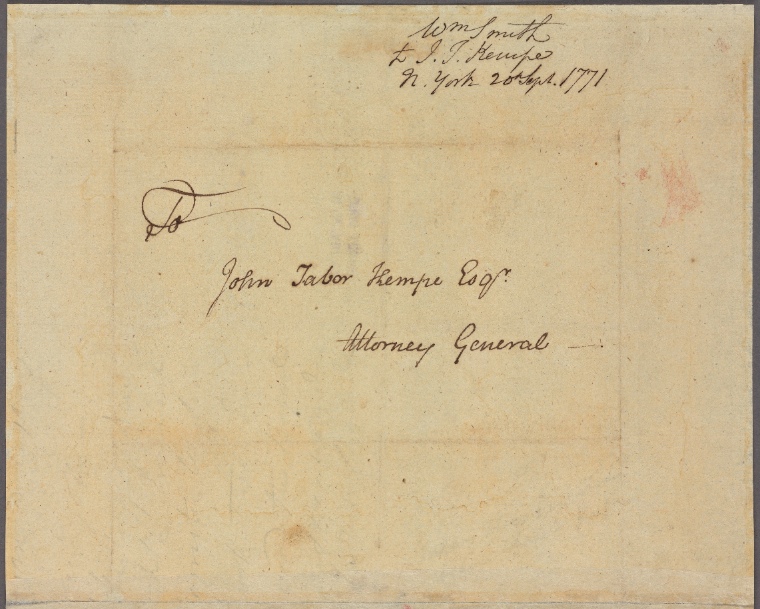 Wm Smith
to J. T. Kempe
N. York 20 Sept. 1771
To
John Tabor Kempe Esqr.
Attorney General —